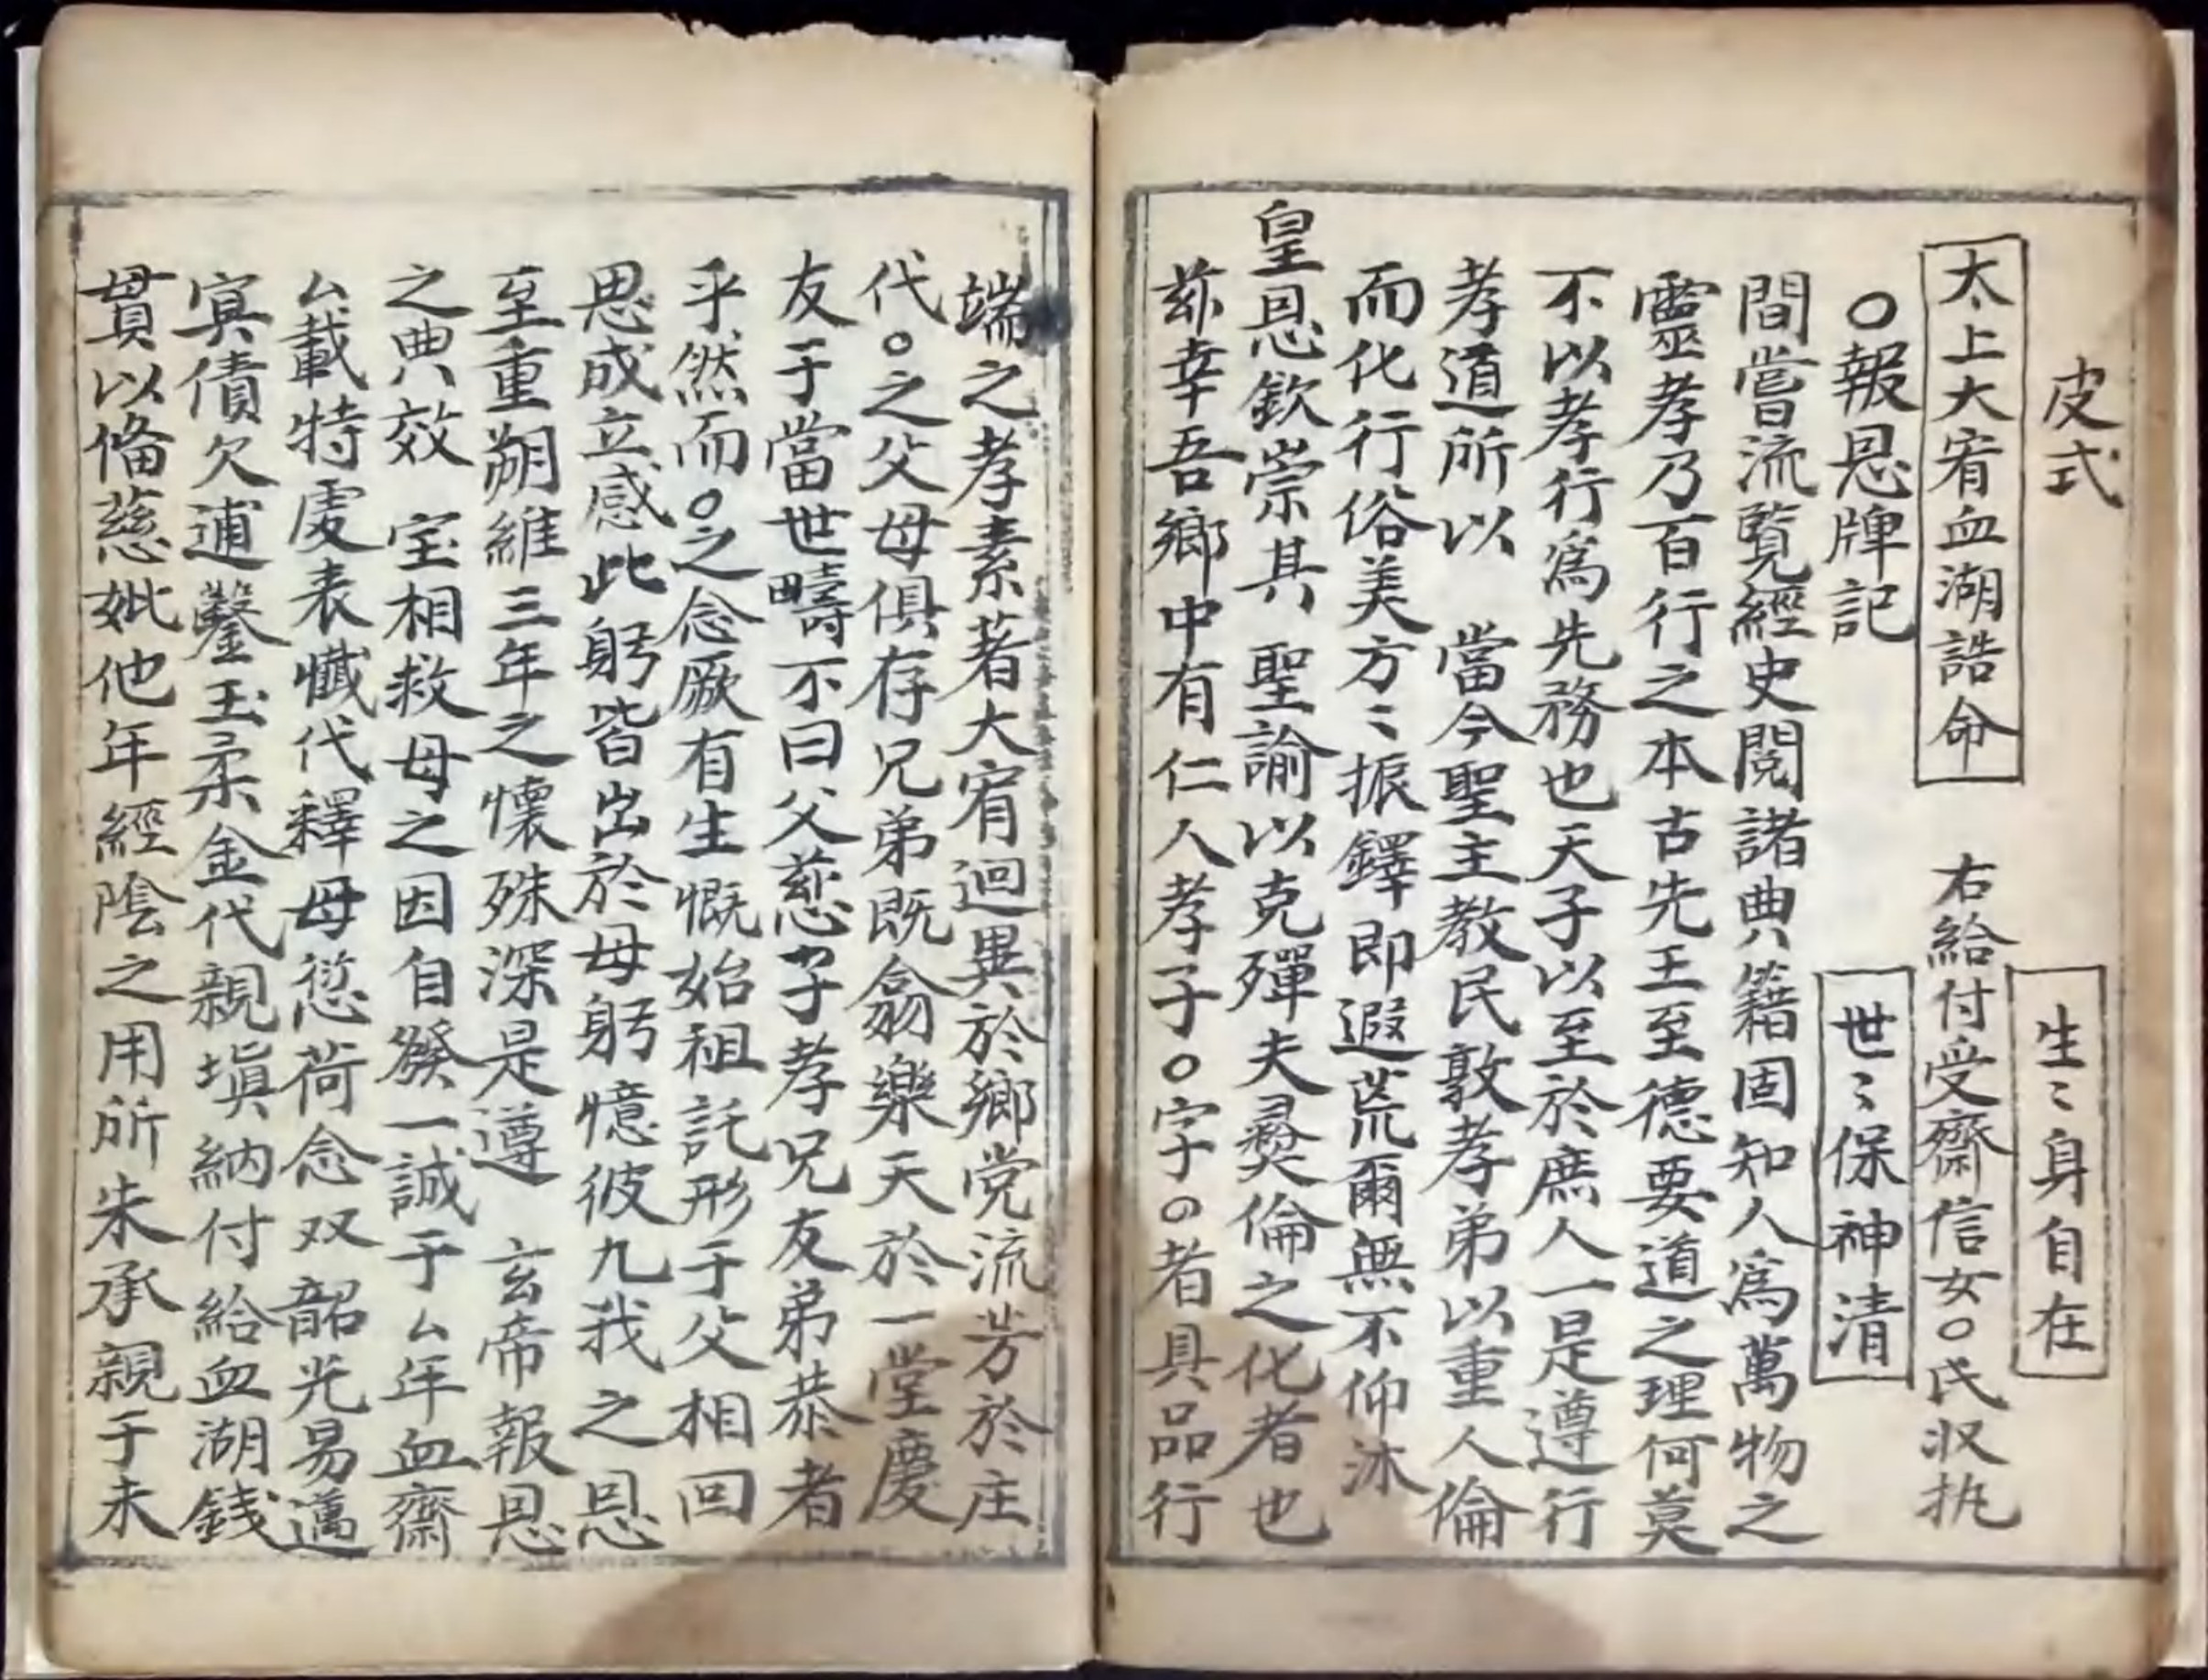 皮式
生〻身自在
太上大宥血湖誥命
右給付受齋信女〇氏収执
〇報恩牌記
世〻保神清
間嘗流覧經史閲諸典籍固知人爲萬物之
靈孝乃百行之本古先王至德要道之理何莫
不以孝行爲先務也天子以至於庶人一是遵行
孝道所以　當今聖主教民敦孝弟以重人倫
而化行俗美方〻振鐸即遐荒爾無不仰沐
皇恩欽崇其　聖諭以克殫夫彛倫之化者也
茲幸吾鄉中有仁人孝子〇字〇者具品行
端之孝素著大宥迥異於鄉党流芳於庄
代〇之父母俱存兄弟既翕樂天於一堂慶
友于當世疇不曰父慈子孝兄友弟恭者
乎然而〇之念厥有生慨始祖託形于父相回
思成立感此躬皆出於母躬憶彼九我之恩
至重朔維三年之懷殊深是遵　玄帝報恩
之典效　宝相救母之因自發一誠于厶年血齋
厶載特虔表懺代釋母愆荷念双韶光易邁
冥債欠逋鑿玉柔金代親塡納付給血湖錢
貫以俻慈妣他年經陰之用所朱承親于未